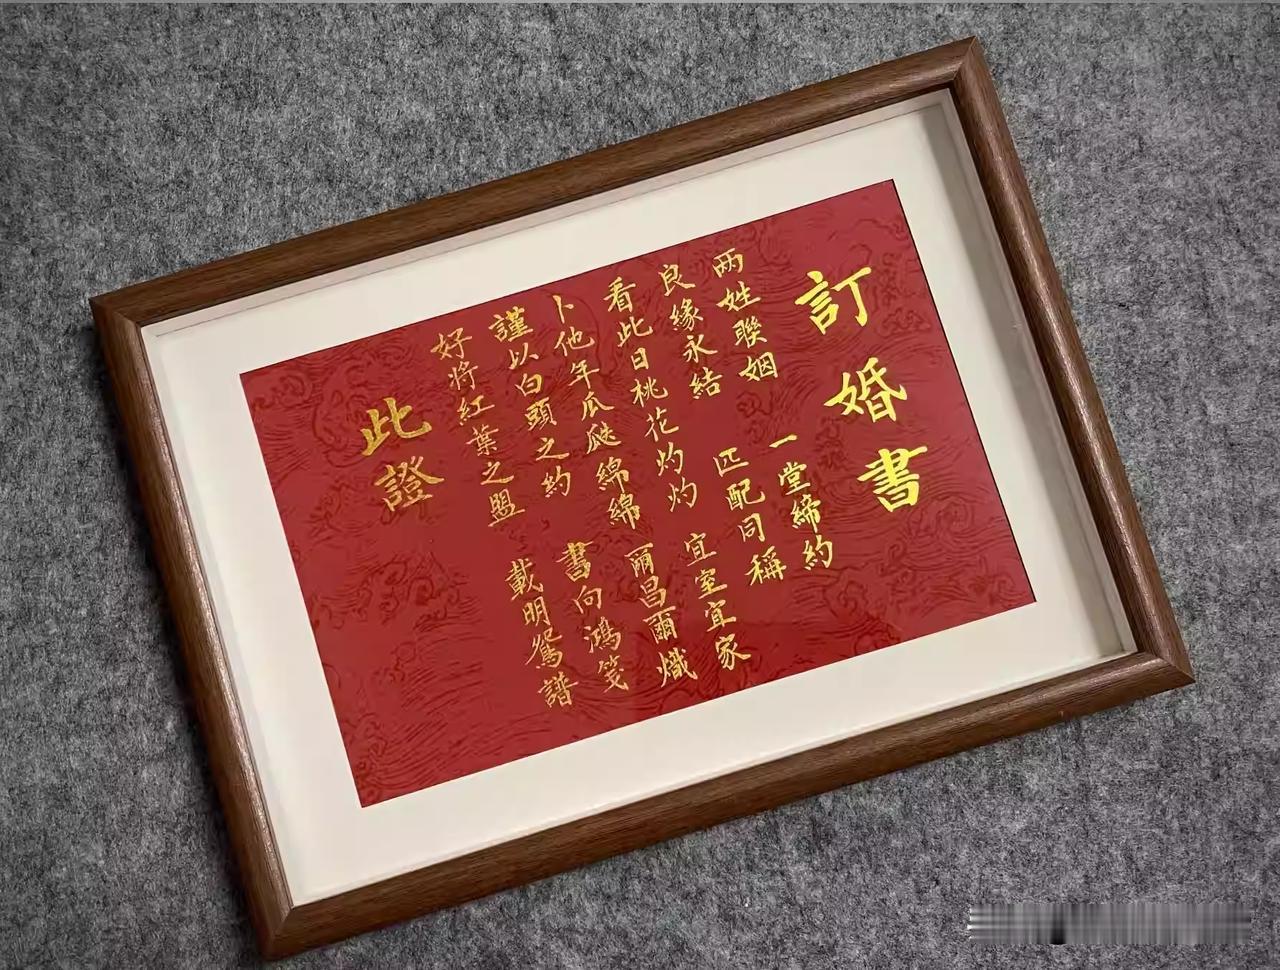 訂婚書
两姓聯姻 一堂締約
良緣永結 匹配同稱
看此日桃花灼灼 宜室宜家
卜他年瓜瓞綿綿 爾昌爾熾
謹以白頭之約 書向鴻箋
好將紅葉之盟 載明鴛譜
此證